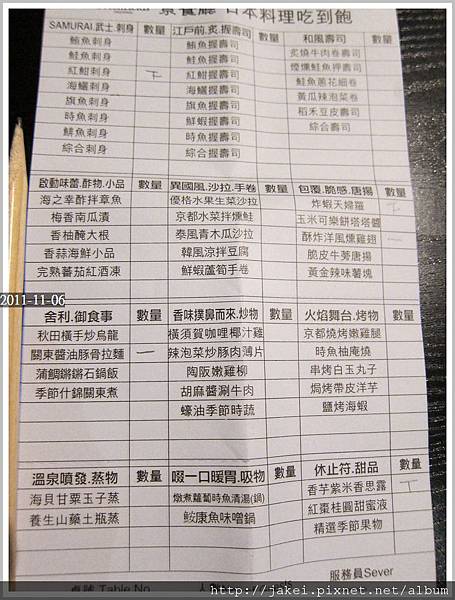 景饗廳 日本料理吃到飽
SAMURAI.武士.刺身 數量 江戶前.炙.握壽司 數量 和風壽司 數量
鮪魚刺身 鮪魚握壽司 炙燒牛肉卷壽司
鮭魚刺身 鮭魚握壽司 優燻鮭魚押壽司
紅魽刺身 紅魽握壽司 鮭魚蔥花細卷
海鱺刺身 海鱺握壽司 黃瓜辣泡菜卷
旗魚刺身 旗魚握壽司 稻禾豆皮壽司
時魚刺身 鮮蝦握壽司 綜合壽司
鯡魚刺身 時魚握壽司
綜合刺身 綜合握壽司
啟動味蕾.酢物.小品 數量 異國風.沙拉.手卷 數量 包覆.脆感.唐揚 數量
海之幸酢拌章魚 優格水果生菜沙拉 炸蝦天婦羅
梅香南瓜漬 京都水菜拌燻鮭 玉米可樂餅塔塔醬
香柚醃大根 泰風青木瓜沙拉 酥炸洋風燻雞翅 一
香蒜海鮮小品 韓風涼拌豆腐 脆皮牛蒡唐揚
完熟蕃茄紅酒凍 鮮蝦蘆筍手卷 黃金辣味薯塊
2011-11-06
舍利.御食事 數量 香味撲鼻而來.炒物 數量 火焰舞台.烤物 數量
秋田橫手炒烏龍 橫須賀咖哩椰汁雞 京都燒烤嫩雞腿
關東醬油豚骨拉麵 一 辣泡菜炒豚肉薄片 時魚柚庵燒
蒲鯛鏘鏘石鍋飯 陶阪嫩雞柳 串烤白玉丸子
季節什錦關東煮 胡麻醬涮牛肉 焗烤帶皮洋芋
蠔油季節時蔬 鹽烤海蝦
溫泉噴發.蒸物 數量 啜一口暖胃.吸物 數量 休止符.甜品 數量
海貝甘粟玉子蒸 燉煮蘿蔔時魚清湯(鍋) 香芋紫米香思露
養生山藥土瓶蒸 鮟康魚味噌鍋 紅棗桂圓甜蜜液
精選季節果物
服務員Sever
桌號 Table No.
http://jakei.pixnet.net/album